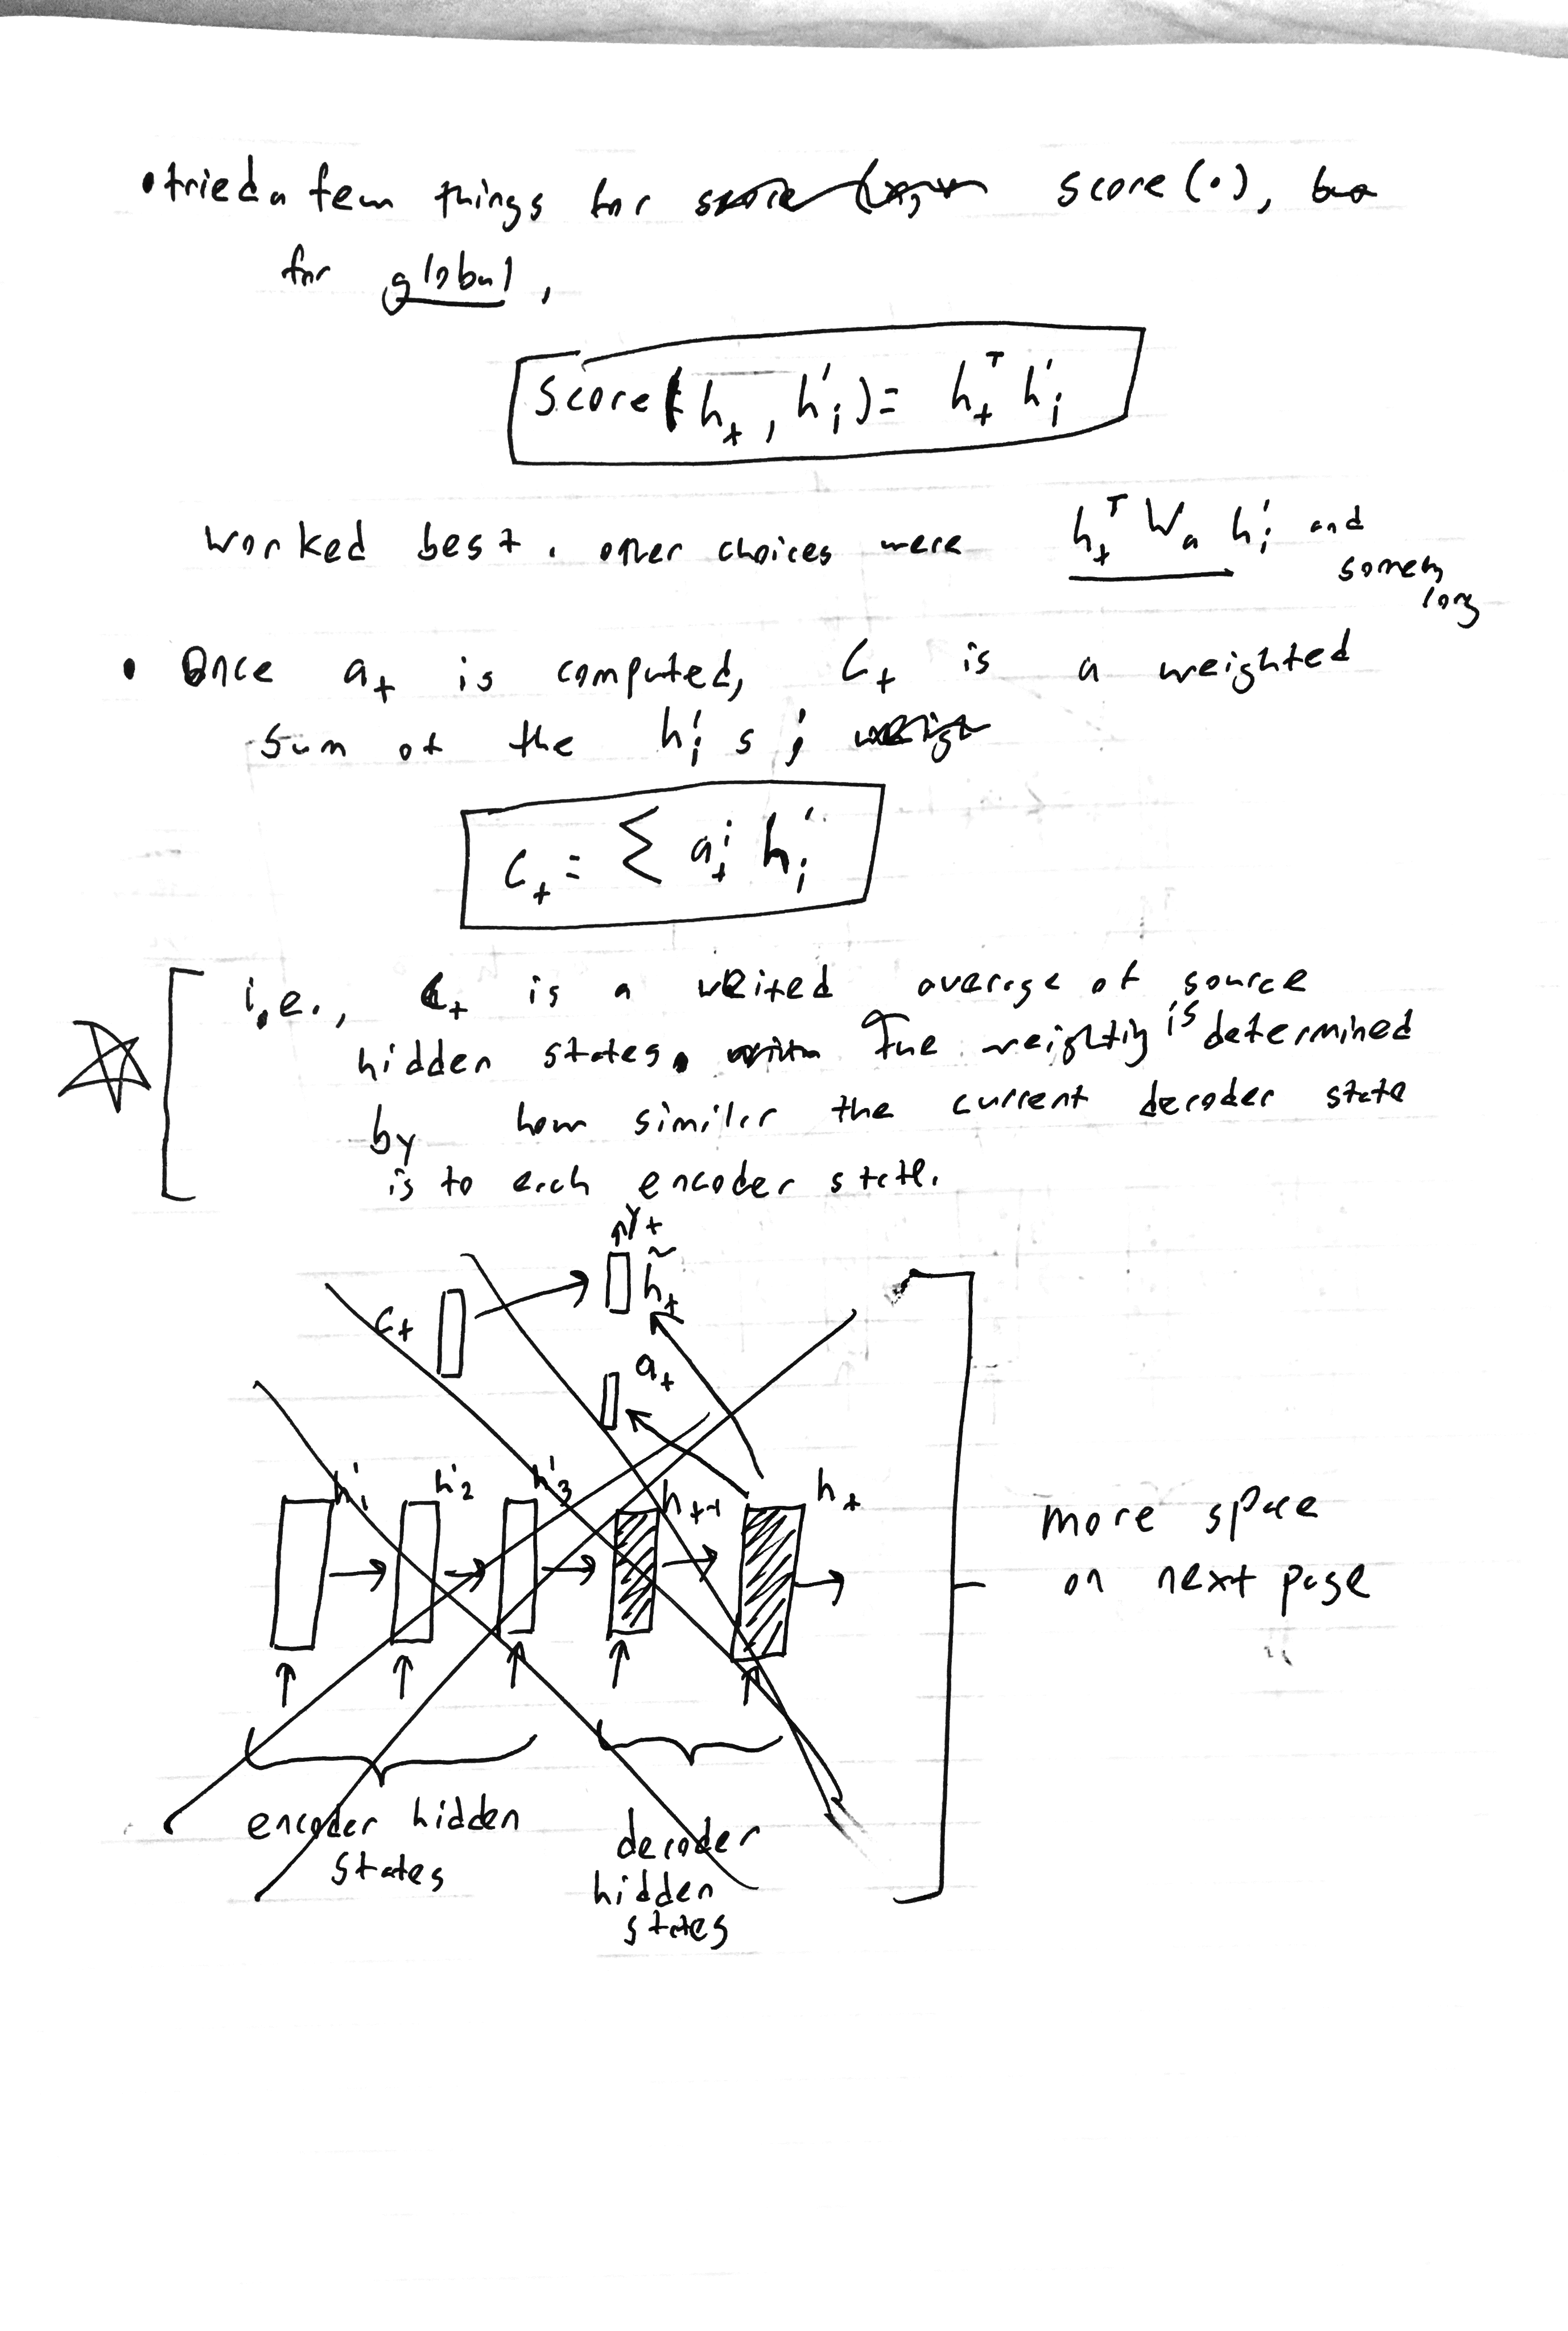 • tried a few things for score(·),
for global,
score(h_t, h'_i) = h_t^T h'_i
worked best. other choices were h_t^T W_a h'_i and
long
• Once a_t is computed, c_t is a weighted
sum of the h'_i s;
c_t = Σ a_t^i h'_i
i.e., c_t is a weited average of source
hidden states. The weightig is determined
by how similar the current decoder state
is to each encoder state.
y_t
h̃_t
c_t
a_t
h'_1 h'_2 h'_3 h_{t-1} h_t
more space
on next page
encoder hidden
states
decoder
hidden
states